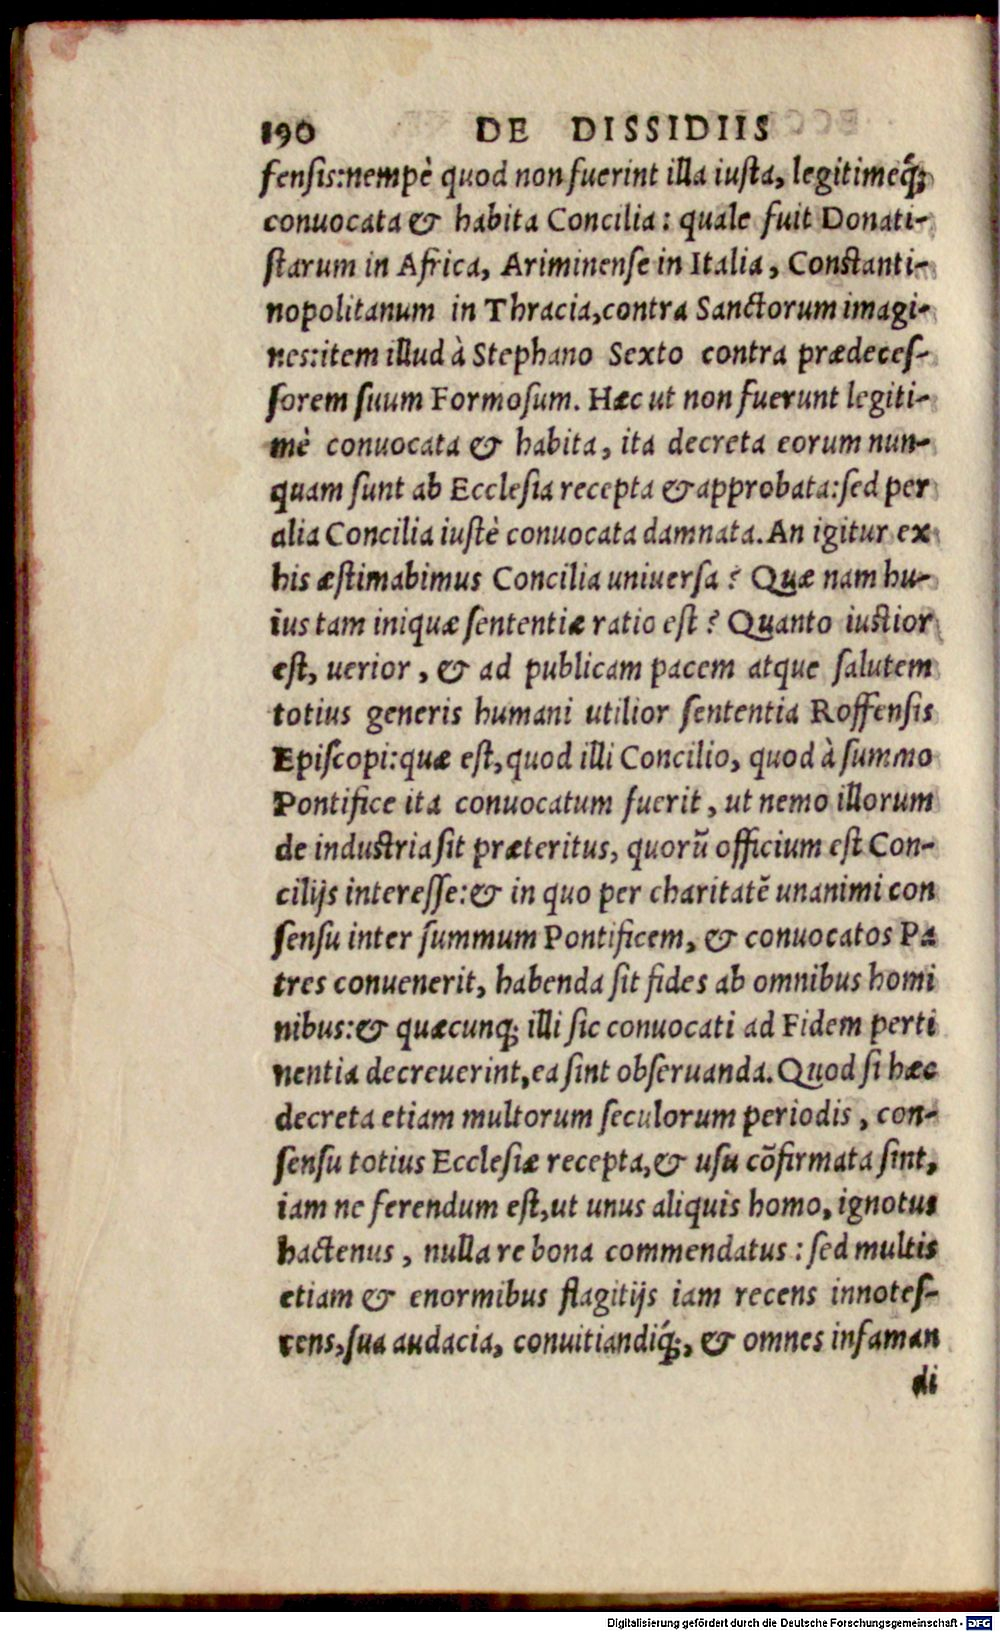 190 DE DISSIDIIS
fensis:nempè quod non fuerint illa iusta, legitimeq́;
conuocata & habita Concilia: quale fuit Donati-
starum in Africa, Ariminense in Italia, Constanti-
nopolitanum in Thracia,contra Sanctorum imagi-
nes:item illud à Stephano Sexto contra prædeces-
sorem suum Formosum. Hæc ut non fuerunt legiti-
mè conuocata & habita, ita decreta eorum nun-
quam sunt ab Ecclesia recepta & approbata:sed per
alia Concilia iustè conuocata damnata. An igitur ex
his æstimabimus Concilia uniuersa? Quæ nam hu-
ius tam iniquæ sententiæ ratio est? Quanto iustior
est, uerior, & ad publicam pacem atque salutem
totius generis humani utilior sententia Roffensis
Episcopi:quæ est,quod illi Concilio, quod à summo
Pontifice ita conuocatum fuerit, ut nemo illorum
de industria sit præteritus, quorũ officium est Con-
cilijs interesse:& in quo per charitatẽ unanimi con
sensu inter summum Pontificem, & conuocatos Pa
tres conuenerit, habenda sit fides ab omnibus homi
nibus:& quæcunq; illi sic conuocati ad Fidem perti
nentia decreuerint,ea sint obseruanda. Quod si hæc
decreta etiam multorum seculorum periodis, con-
sensu totius Ecclesiæ recepta,& usu cõfirmata sint,
iam ne ferendum est,ut unus aliquis homo, ignotus
hactenus, nulla re bona commendatus: sed multis
etiam & enormibus flagitijs iam recens innotes-
cens,sua audacia, conuitiandiq́;, & omnes infaman
di
Digitalisierung gefördert durch die Deutsche Forschungsgemeinschaft - DFG